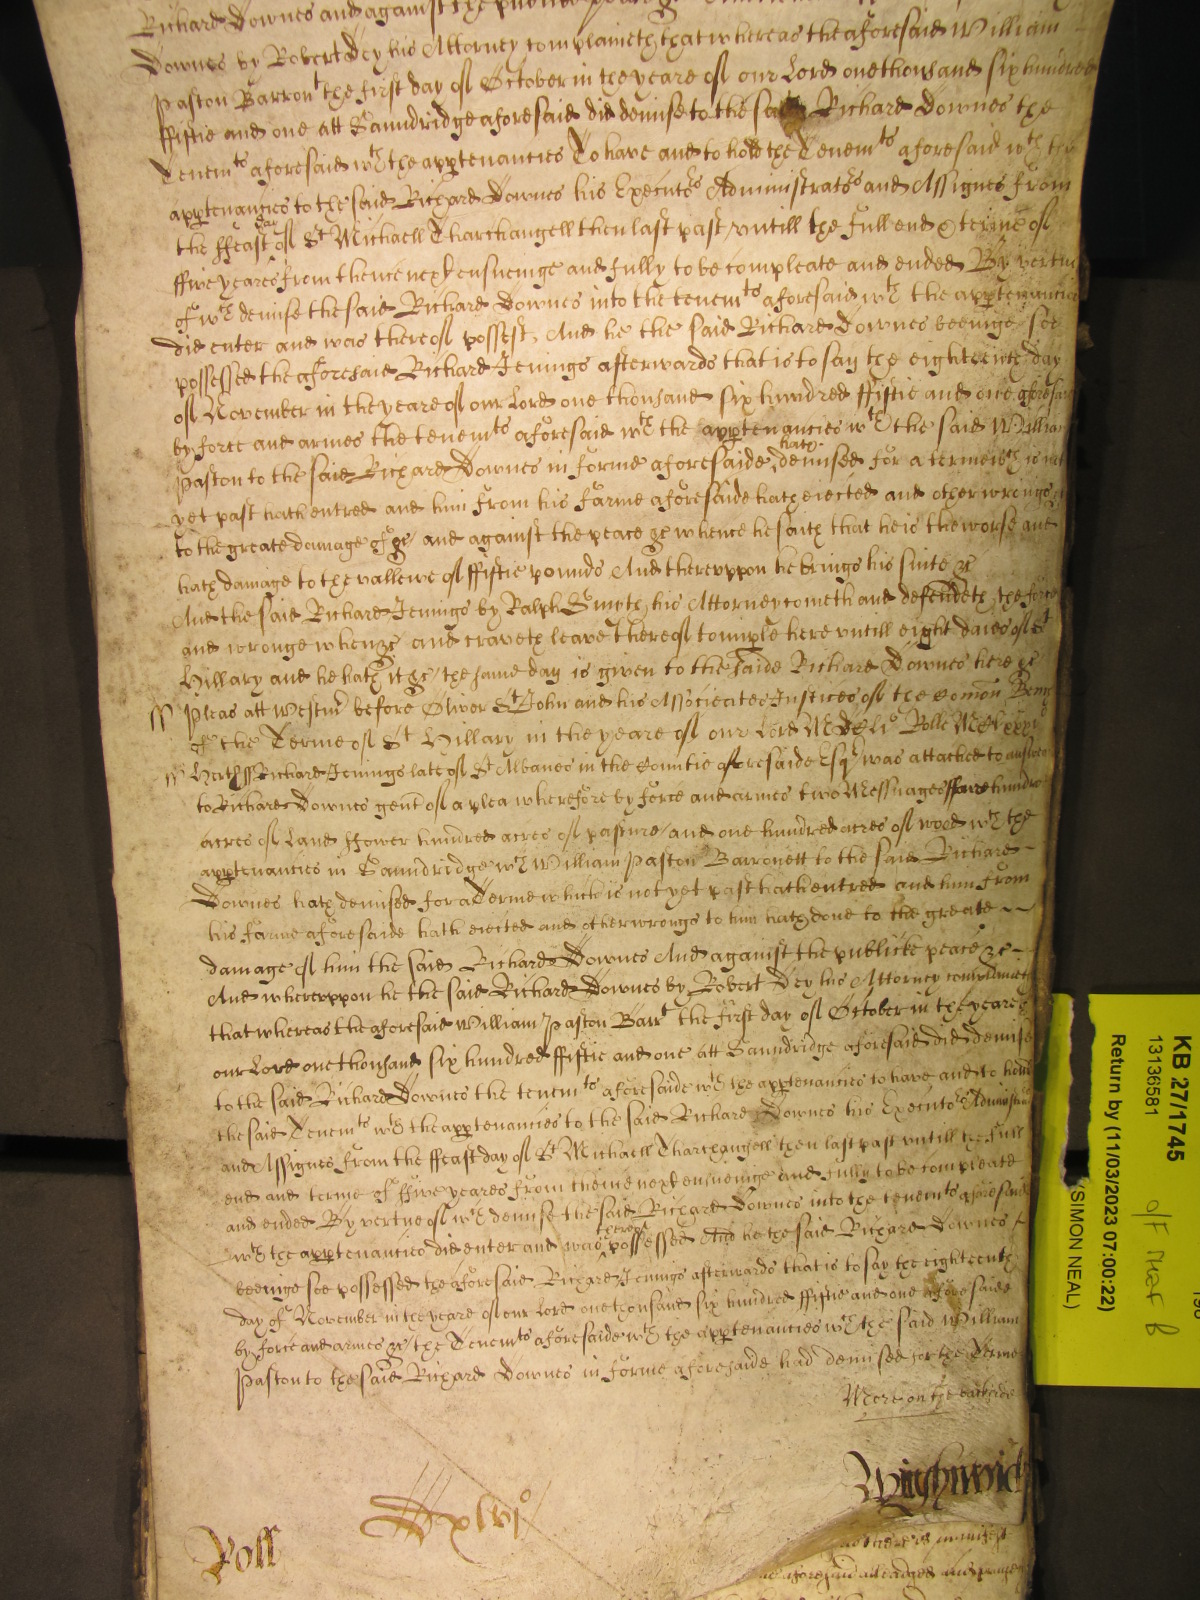 Richard Downes and against the publicke peace
Downes by Robert Dey his Attorney complaineth that whereas the aforesaid William
Paston Barront the first day of October in the yeare of our Lord one thousand six hundred
ffiftie and one att Sanndridge aforesaid did demise to the said Richard Downes the
Tenemts aforesaid wth the apptenancies To have and to hold the Tenemts aforesaid wth the
apptenancies to the said Richard Downes his Executors Administrators and Assignes from
the ffeast day of St Michaell Tharchangell then last past untill the full end & terme of
ffive yeares from thence next ensueinge and fully to be compleate and ended By vertue
of wch demise the said Richard Downes into the tenemts aforesaid wth the apptenancies
did enter and was thereof possest, And he the said Richard Downes beeinge soe
possessed the aforesaid Richard Jenings afterwards that is to say the eighteenth day
of November in the yeare of our Lord one thousand six hundred ffiftie and one aforesaid
by force and armes the tenemts aforesaid wth the apptenancies wch the said William
Paston to the said Richard Downes in forme aforesaide hath demised for a terme wch is not
yet past hath entred and him from his farme aforesaide hath eiected and other wronges &c
to the greate damage of &c and against the peace &c whence he saith that he is the worse and
hath damage to the vallewe of ffiftie pounds And thereuppon he brings his suite &c
And the said Richard Jennigs by Ralph Smyth his Attorney cometh and defendeth the force
and wronge when &c and craveth leave thereof to imple here untill eight daies of St
Hillary and he hath it &c the same day is given to the saide Richard Downes here &c
ss Pleas att Westmr before Oliver St John and his Associates Justices of the Comon Bench
of the Terme of St Hillary in the yeare of our Lord MDCli° Rolle
Hertf ss Richard Jenings late of St Albanes in the Countie aforesaide Esqr was attached to answere
to Richard Downes gent of a plea wherefore by force and armes two Messuages ffowre hundred
acres of Land ffower hundred acres of pasture and one hundred acres of wood wth the
apptenancies in Sanndridge wch William Paston Barronett to the said Richard
Downes hath demised for a Terme which is not yet past hath entred and him from
his farme aforesaide hath eiected and other wrongs to him hath done to the greate
damage of him the said Richard Downes And against the publicke peace &c
And whereuppon he the said Richard Downes by Robert Dey his Attorney complaineth
that whereas the aforesaid William Paston Barrt the first day of October in the yeare of
our Lord one thousand six hundred ffiftie and one att Sanndridge aforesaid did demise
to the said Richard Downes the tenemts aforesaide wth the apptenancies to have and to hould
the said Tenemts wth the apptenancies to the said Richard Downes his Executors Administrators
and Assignes from the ffeast day of St Michaell Tharchangell then last past untill the full
end and terme of ffive yeares from thence next ensueinge and fully to be compleate
and ended By vertue of wch demise the said Richard Downes into the tenemts aforesaid
wth the apptenancies did enter and was thereof possessed And he the said Richard Downes
beeinge soe possessed the aforesaid Richard Jennigs afterwards that is to say the eighteenth
day of November in the yeare of our Lord one thousand six hundred ffiftie and one aforesaid
by force and armes &c the Tenemts aforesaide wth the apptenancies wch the said William
Paston to the said Richard Downes in forme aforesaide had demised for the Terme
More on the backside
Wightwick
xlvi°
Poss
KB 27/1745
13136581
Return by (11/03/2023 07:00:22)
(SIMON NEAL)